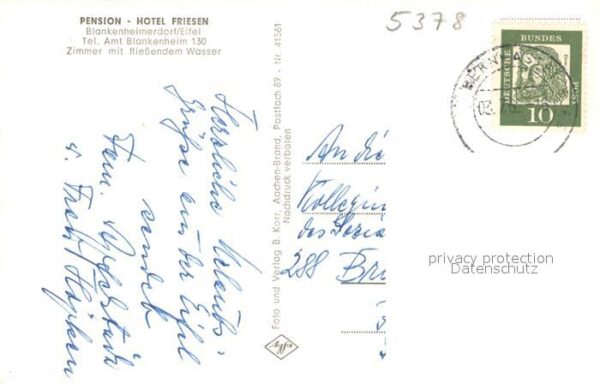 PENSION - HOTEL FRIESEN
Blankenheimerdorf/Eifel
Tel. Amt Blankenheim 130
Zimmer mit fließendem Wasser
5378
Herzliche Urlaubs-
Grüße aus der Eifel
sendet
Fam.
Foto und Verlag B. Korr, Aachen-Brand, Postfach 89 - Nr. 41561
Nachdruck verboten
Agfa
DEUTSCHE BUNDESPOST
10
An die
Kolleginn
des Sozia
288 Br
privacy protection
Datenschutz